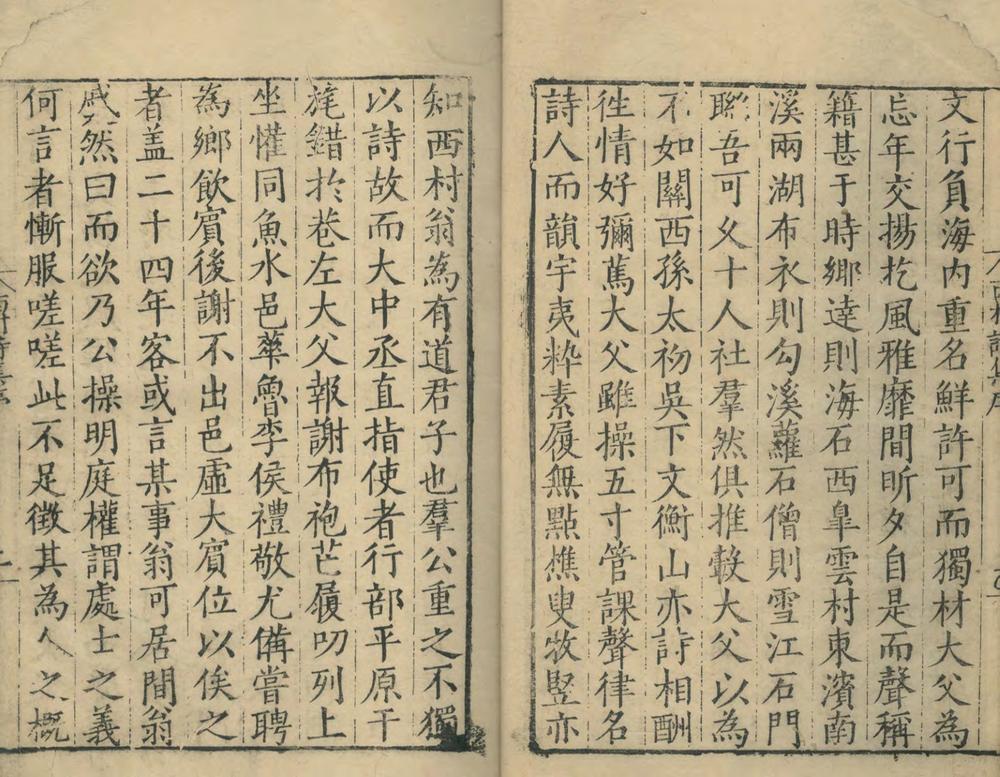 文行負海内重名鮮許可而獨材大父為
忘年交揚扢風雅靡間昕夕自是而聲稱
籍甚于時鄉達則海石西臯雲村東濱南
溪兩湖布衣則勾溪蘿石僧則雪江石門
聮吾可父十人社羣然俱推轂大父以為
不如關西孫太初吳下文衡山亦詩相酬
徃情好彌篤大父雖操五寸管課聲律名
詩人而韻宇夷粹素履無點樵叟牧豎亦
知西村翁為有道君子也羣公重之不獨
以詩故而大中丞直指使者行部平原干
旄錯扵巷左大父報謝布袍芒履叨列上
坐懽同魚水邑犖魯李侯禮敬尤備嘗聘
為鄉飲賓後謝不出邑虛大賓位以俟之
者盖二十四年客或言某事翁可居間翁
慼然曰而欲乃公操明庭權謂處士之義
何言者慚服嗟嗟此不足徵其為人之概